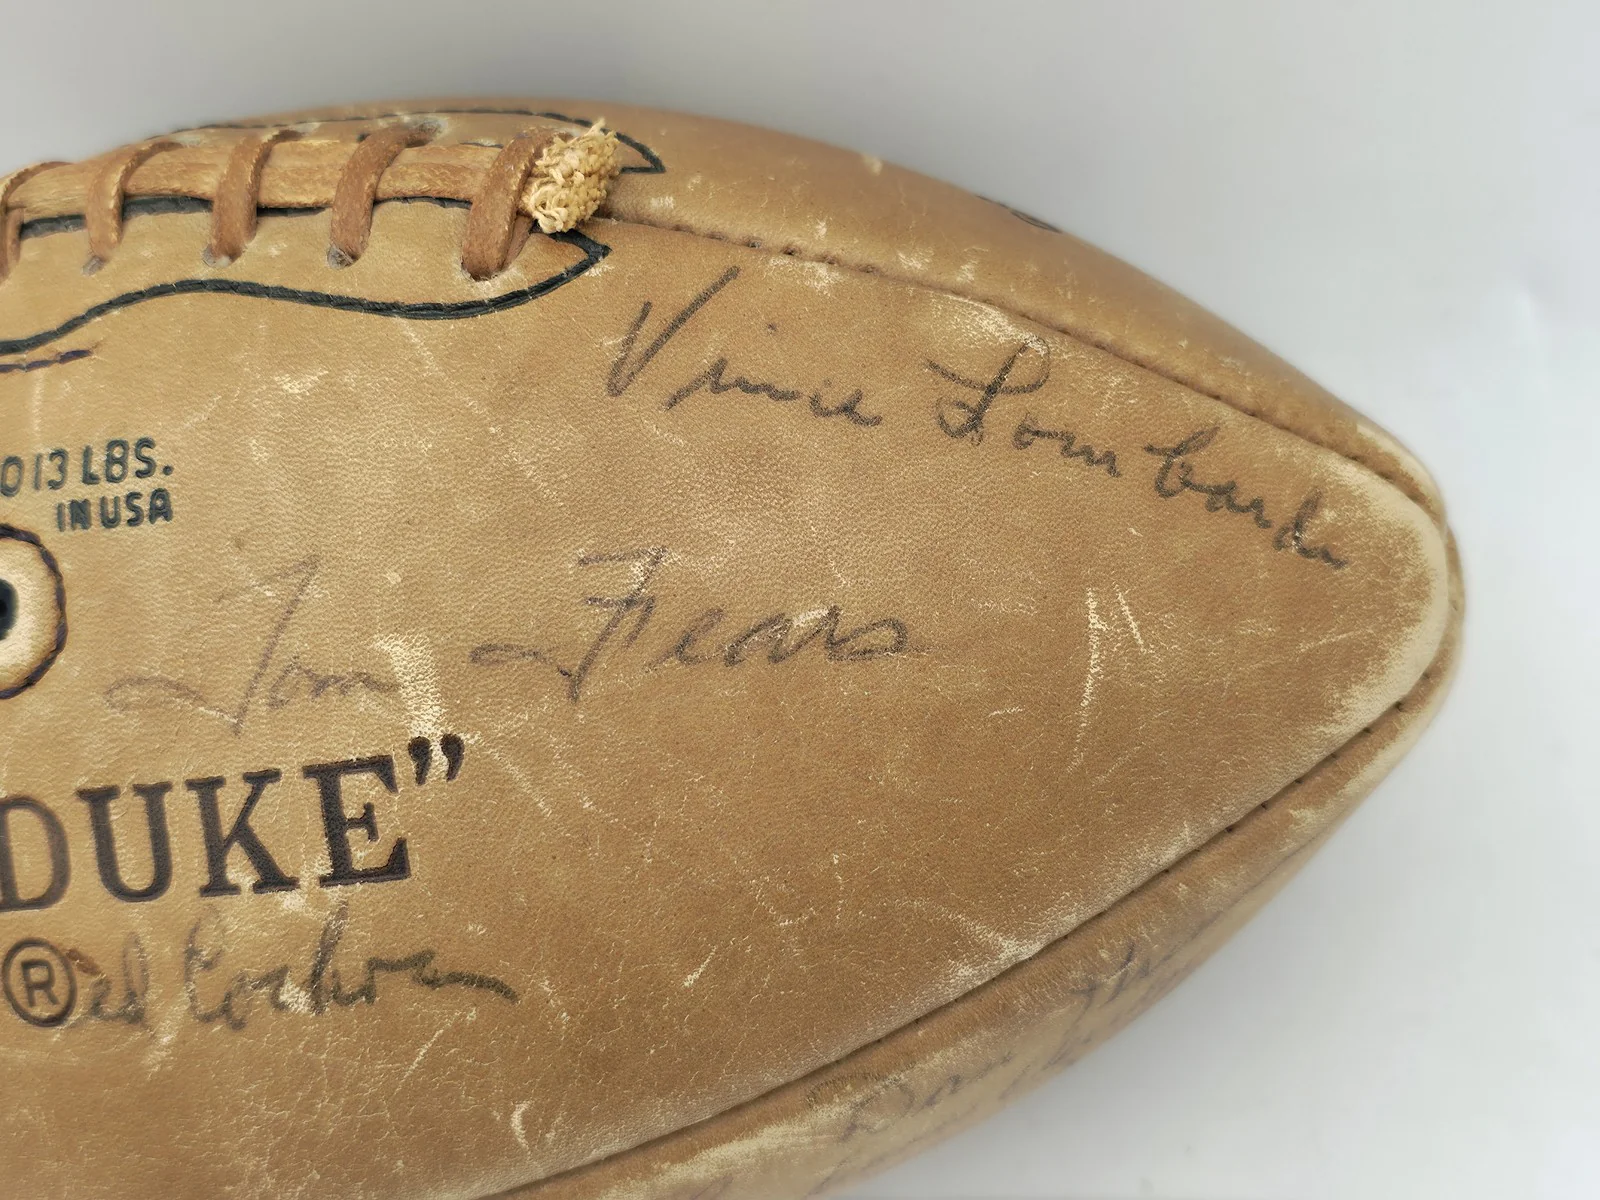 Vince Lombardi
13 LBS.
IN USA
Tom Fears
DUKE”
®ed Cochran